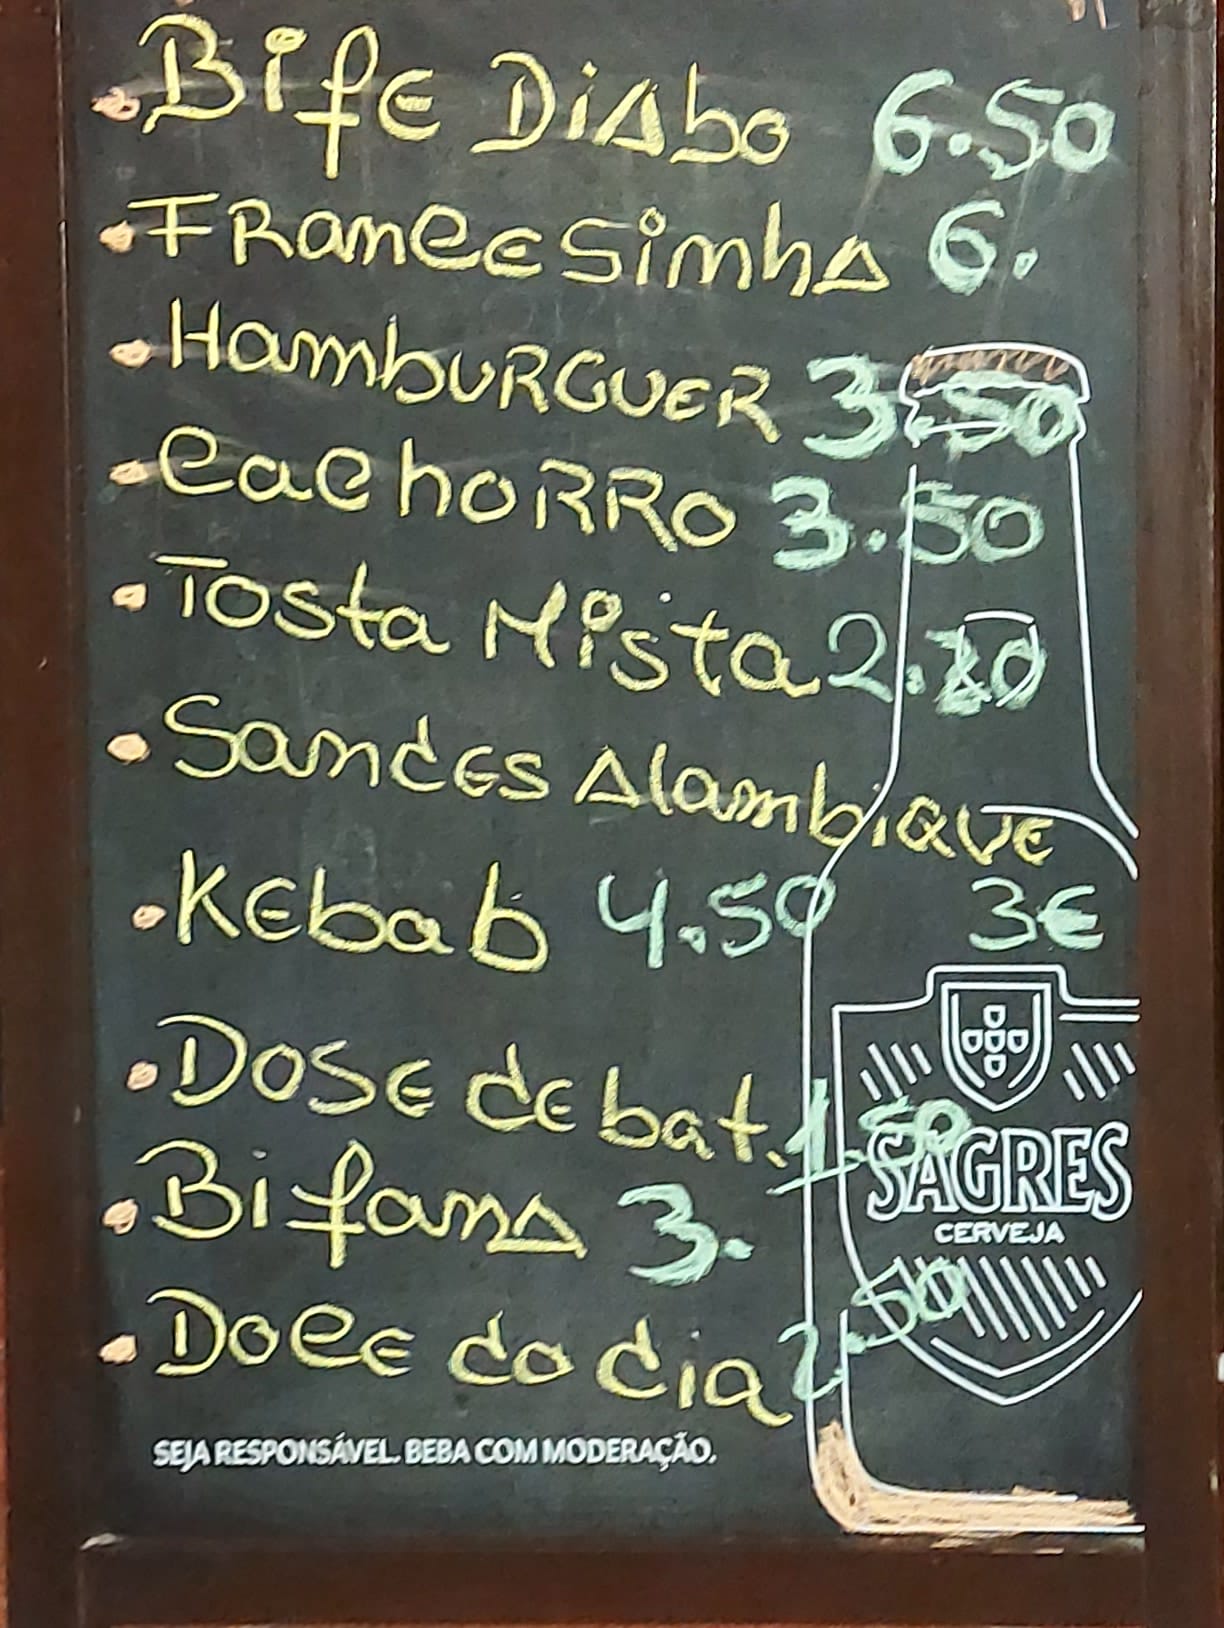 Bife Diabo 6.50
Francesinha 6.
Hamburguer 3.50
Cachorro 3.50
Tosta Mista
Sandes Alambique
3€
Kebab 4.50
Dose de bat. 1.50
Bifana 3.
Doce do dia 2.50
SAGRES
CERVEJA
SEJA RESPONSÁVEL. BEBA COM MODERAÇÃO.